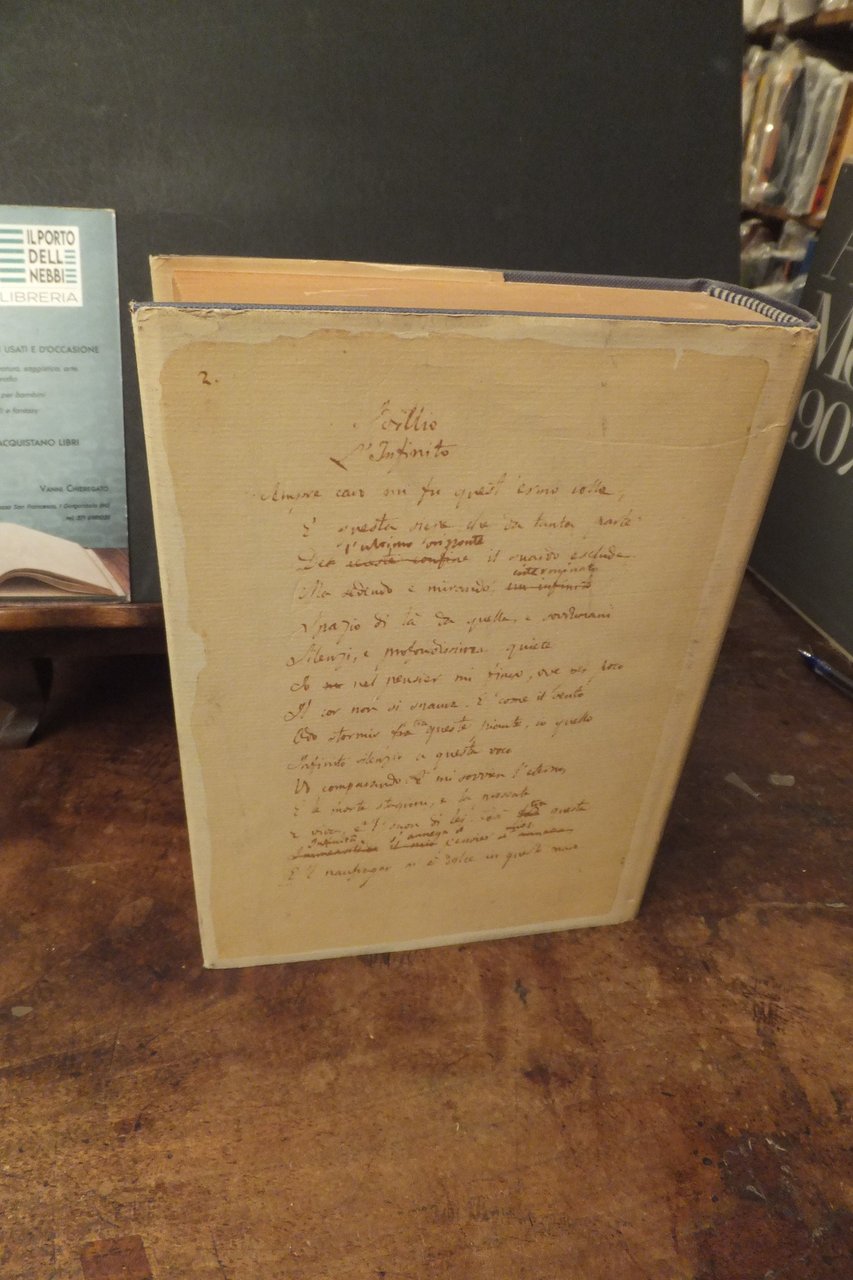 IL PORTO
DELLE
NEBBIE
LIBRERIA
USATI E D'OCCASIONE
saggistica, arte
per bambini
e fantasy
ACQUISTANO LIBRI
VANNI CHIEREGATO
2.
Idillio
L'Infinito
Sempre caro mi fu quest' ermo colle,
E questa siepe che da tanta parte
l'ultimo orizzonte
De celeste confine il guardo esclude.
interminato
Ma sedendo e mirando, un infinito
Spazio di là da quella, e sovrumani
Silenzi, e profondissima quiete
Io nel pensier mi fingo, ove per poco
Il cor non si spaura. E come il vento
Odo stormir fra queste piante, io quello
Infinito silenzio a questa voce
Vo comparando: e mi sovvien l'eterno,
E le morte stagioni, e la presente
E viva, e 'l suon di lei. Così questa
Immensità il mio pensier
E 'l naufragar m' è dolce in questo mare
90